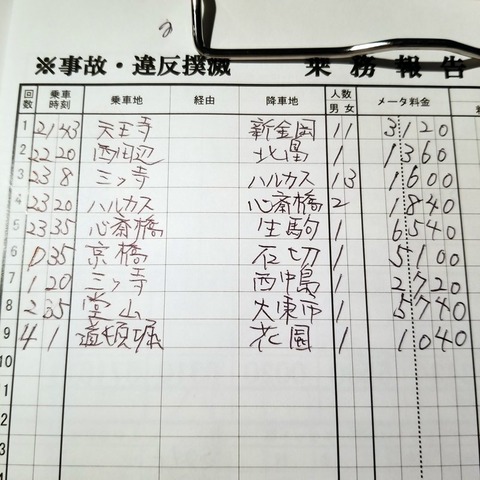 ※事故・違反撲滅 乗務報告
回数 乗車時刻 乗車地 経由 降車地 人数 男 女 メータ料金
1 21 43 天王寺 新金岡 1 1 3120
2 22 20 西田辺 北畠 1 1360
3 23 8 三ッ寺 ハルカス 1 3 1600
4 23 20 ハルカス 心斎橋 2 1840
5 23 35 心斎橋 生駒 1 6540
6 0 35 京橋 石切 1 5100
7 1 20 三ッ寺 西中島 1 2720
8 2 35 堂山 大東市 1 5740
9 4 1 道頓堀 花園 1 1040
10